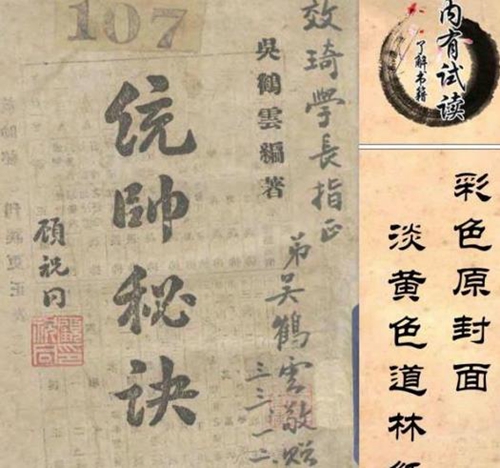 107
效琦學長指正
吳鶴雲編著
统帥秘訣
顧祝同
弟吳鶴雲敬贈
三三、一二、
内有试读
了解书籍
彩色原封面
淡黄色道林纸